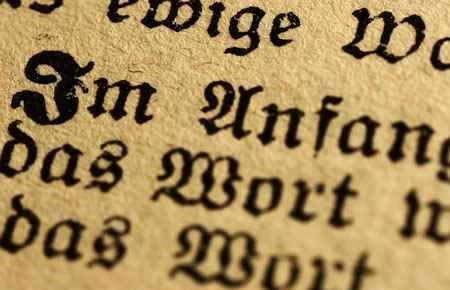 s ewige Wo
Im Anfang
das Wort w
das Wort